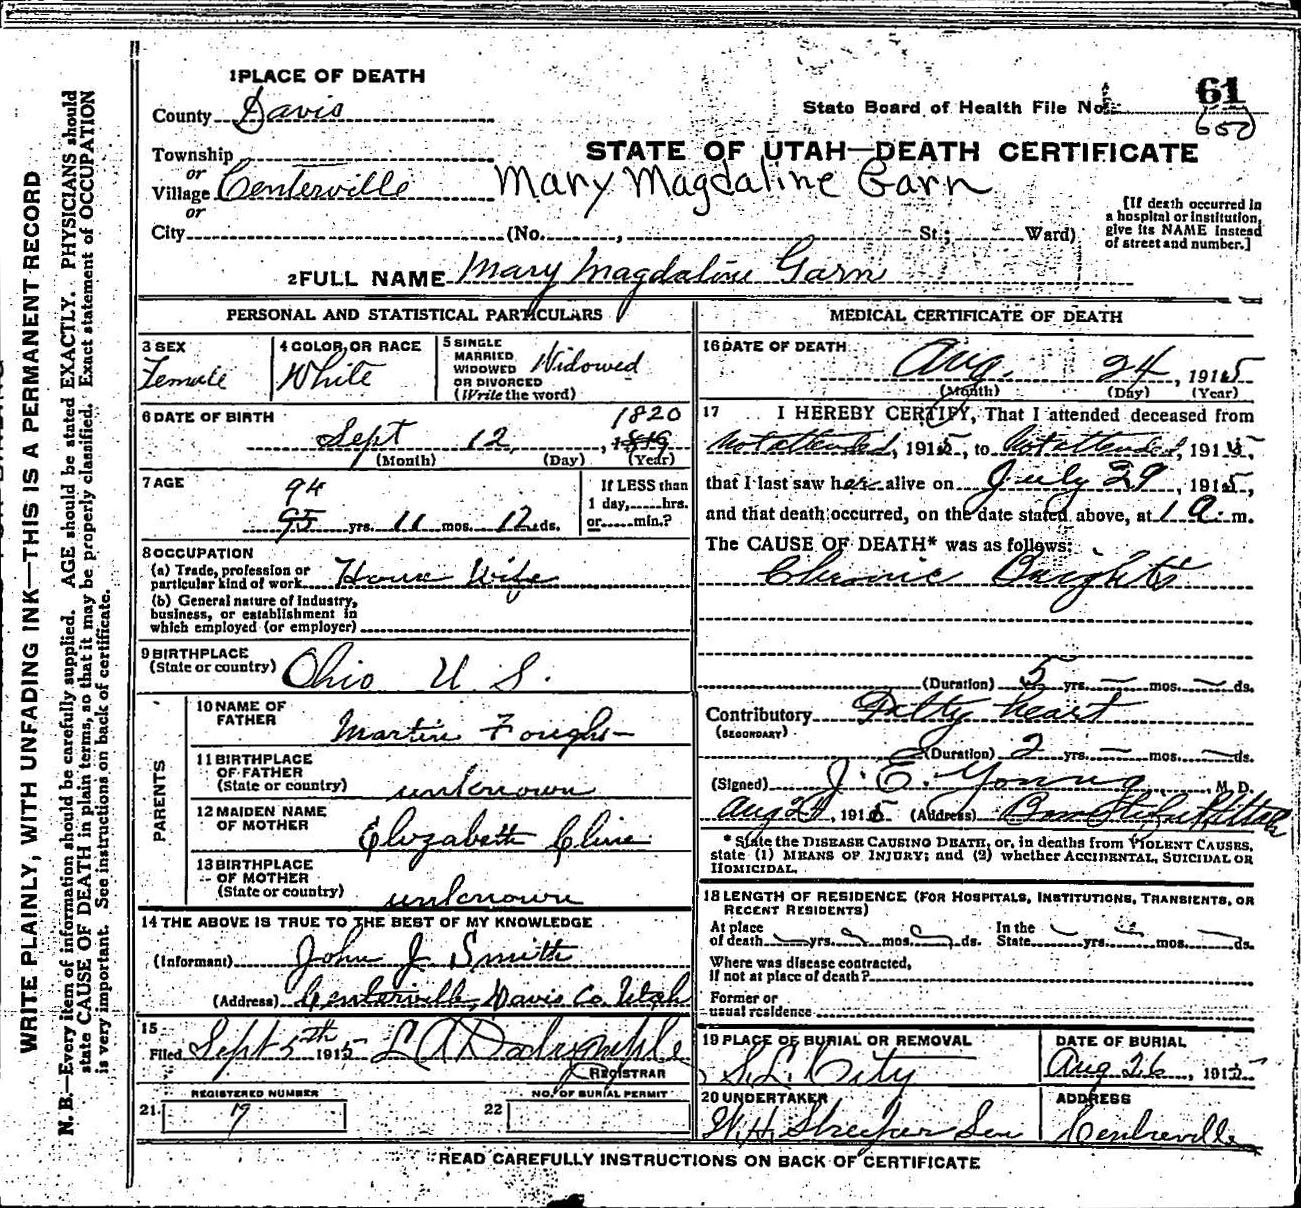 1 PLACE OF DEATH
County Davis
State Board of Health File No. 61
Township
or
Village Centerville
or
City (No. , St.; Ward)
STATE OF UTAH—DEATH CERTIFICATE
Mary Magdaline Garn
[If death occurred in
a hospital or institution,
give its NAME instead
of street and number.]
2 FULL NAME Mary Magdaline Garn
PERSONAL AND STATISTICAL PARTICULARS
3 SEX
Female
4 COLOR OR RACE
White
5 SINGLE
MARRIED
WIDOWED
OR DIVORCED
(Write the word)
Widowed
6 DATE OF BIRTH
1820
Sept 12, 1819
(Month) (Day) (Year)
7 AGE
94
95 yrs. 11 mos. 12 ds.
If LESS than
1 day, hrs.
or min.?
8 OCCUPATION
(a) Trade, profession or
particular kind of work House Wife
(b) General nature of industry,
business, or establishment in
which employed (or employer)
9 BIRTHPLACE
(State or country) Ohio U S.
PARENTS
10 NAME OF
FATHER
Martin
11 BIRTHPLACE
OF FATHER
(State or country) unknown
12 MAIDEN NAME
OF MOTHER
Elizabeth Cline
13 BIRTHPLACE
OF MOTHER
(State or country) unknown
14 THE ABOVE IS TRUE TO THE BEST OF MY KNOWLEDGE
(Informant) John J Smith
(Address) Centerville, Davis Co. Utah
15
Filed Sept 5th 1915 L A Dalrymple
REGISTRAR
REGISTERED NUMBER
21
NO. OF BURIAL PERMIT
22
MEDICAL CERTIFICATE OF DEATH
16 DATE OF DEATH
Aug. 24, 1915
(Month) (Day) (Year)
17 I HEREBY CERTIFY, That I attended deceased from
Not attended, 1915, to Not attended, 1915,
that I last saw her alive on July 29, 1915,
and that death occurred, on the date stated above, at 1 a. m.
The CAUSE OF DEATH* was as follows:
Chronic Brights
(Duration) 5 yrs. — mos. — ds.
Contributory Fatty heart
(SECONDARY)
(Duration) 2 yrs. — mos. — ds.
(Signed) J. E. Young M. D.
Aug 24, 1915 (Address)
* State the DISEASE CAUSING DEATH, or, in deaths from VIOLENT CAUSES,
state (1) MEANS OF INJURY; and (2) whether ACCIDENTAL, SUICIDAL OR
HOMICIDAL.
18 LENGTH OF RESIDENCE (FOR HOSPITALS, INSTITUTIONS, TRANSIENTS, OR
RECENT RESIDENTS)
At place
of death yrs. mos. ds.
In the
State yrs. mos. ds.
Where was disease contracted,
if not at place of death?
Former or
usual residence
19 PLACE OF BURIAL OR REMOVAL
S. L. City
DATE OF BURIAL
Aug 26, 1915
20 UNDERTAKER
W. H. Streeper Sen
ADDRESS
Centreville
READ CAREFULLY INSTRUCTIONS ON BACK OF CERTIFICATE
WRITE PLAINLY, WITH UNFADING INK—THIS IS A PERMANENT RECORD
N. B.—Every item of information should be carefully supplied. AGE should be stated EXACTLY. PHYSICIANS should
state CAUSE OF DEATH in plain terms, so that it may be properly classified. Exact statement of OCCUPATION
is very important. See instructions on back of certificate.